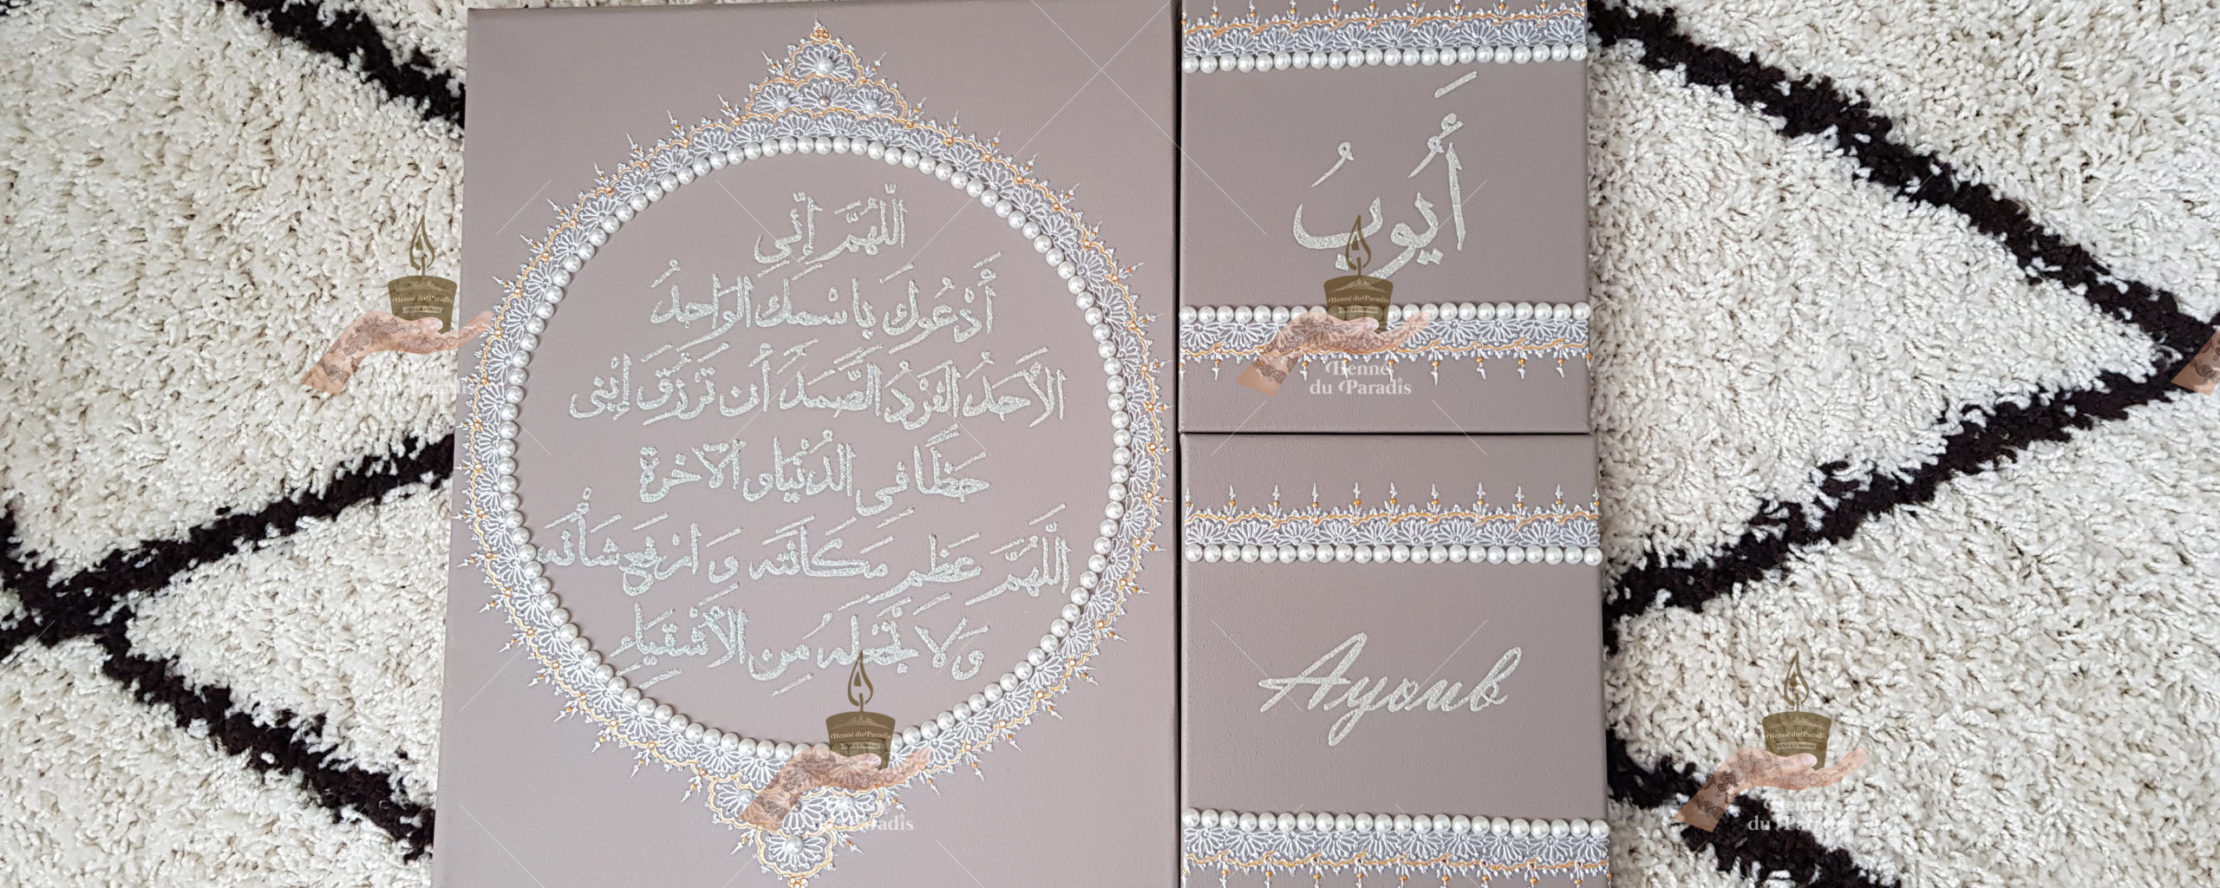 اللّهُمَّ إنّي
أَدْعُوكَ بِاسْمِكَ الوَاحِدُ
الأَحَدُ الفَرْدُ الصَّمَدَ أن تَرْزُقَ إبْنى
حَظَّا في الدُنْيَا و الآخرة
اللّهُمَّ عَظِمِ مَكَانَته وَ ارْفَع شَأْنَه
وَ لا تَجْعَله مِن الأَشْقِيَاءِ
أَيُوبُ
Ayoub
Henné du Paradis
Henné
du Paradis